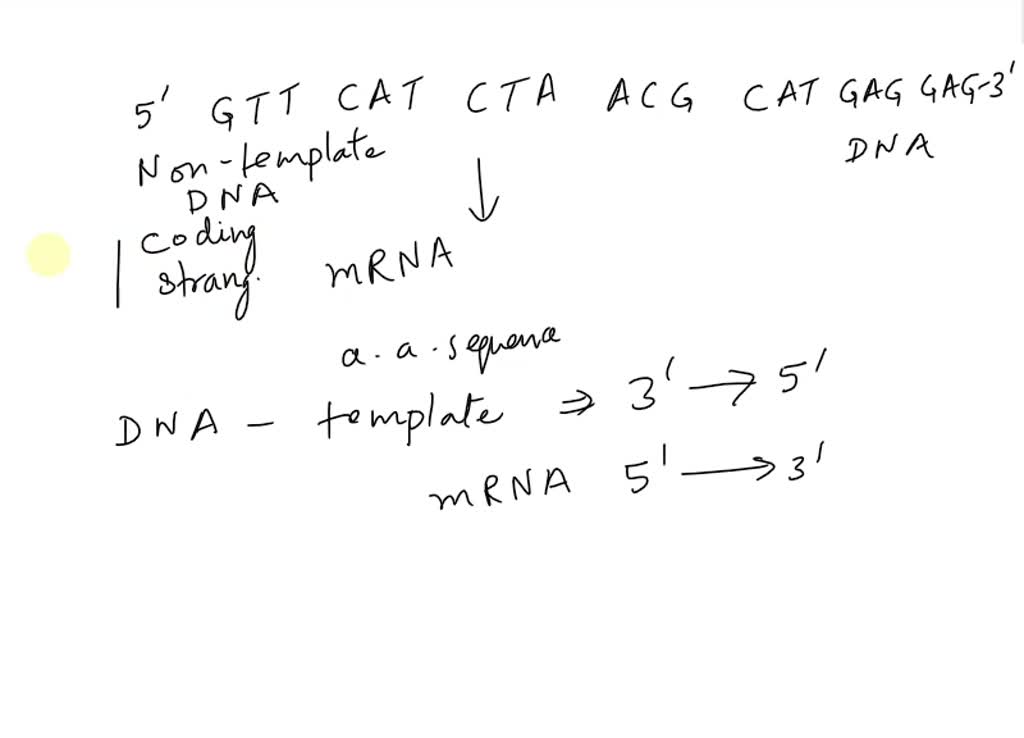 5' GTT CAT CTA ACG CAT GAG GAG-3'
Non-template DNA
DNA
Coding
strang.
mRNA
a.a.sequence
DNA - template ⇒ 3' → 5'
mRNA 5' → 3'